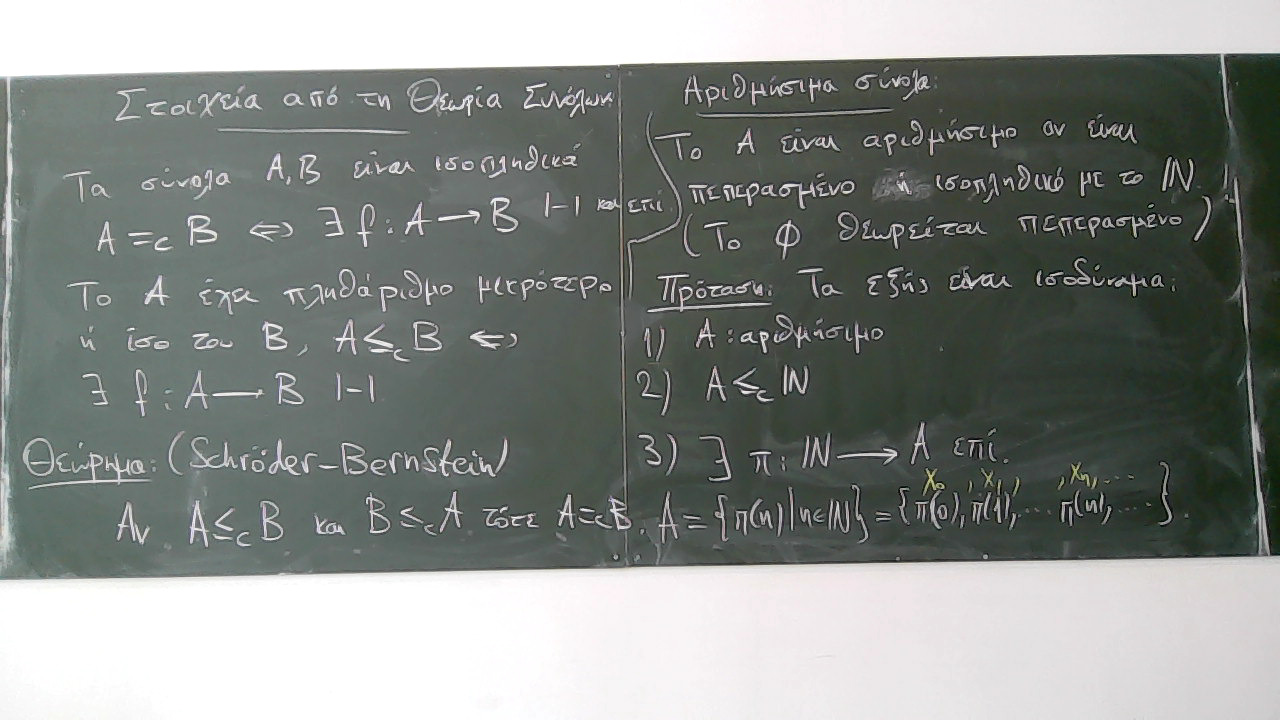 Στοιχεία από τη Θεωρία Συνόλων
Τα σύνολα A, B είναι ισοπληθικά
A =c B ⇔ ∃ f : A → B 1-1 και επί
Το A έχει πληθάριθμο μικρότερο
ή ίσο του B, A ≤c B ⇔
∃ f : A → B 1-1
Θεώρημα: (Schröder-Bernstein)
Αν A ≤c B και B ≤c A τότε A =c B.
Αριθμήσιμα σύνολα:
Το A είναι αριθμήσιμο αν είναι
πεπερασμένο ή ισοπληθικό με το ℕ.
(Το φ θεωρείται πεπερασμένο)
Πρόταση: Τα εξής είναι ισοδύναμα:
1) A : αριθμήσιμο
2) A ≤c ℕ
3) ∃ π : ℕ → A επί.
x₀, x₁, , xₙ, ...
A = {π(n) | n∈ℕ} = {π(0), π(1), ... π(n), ... }.